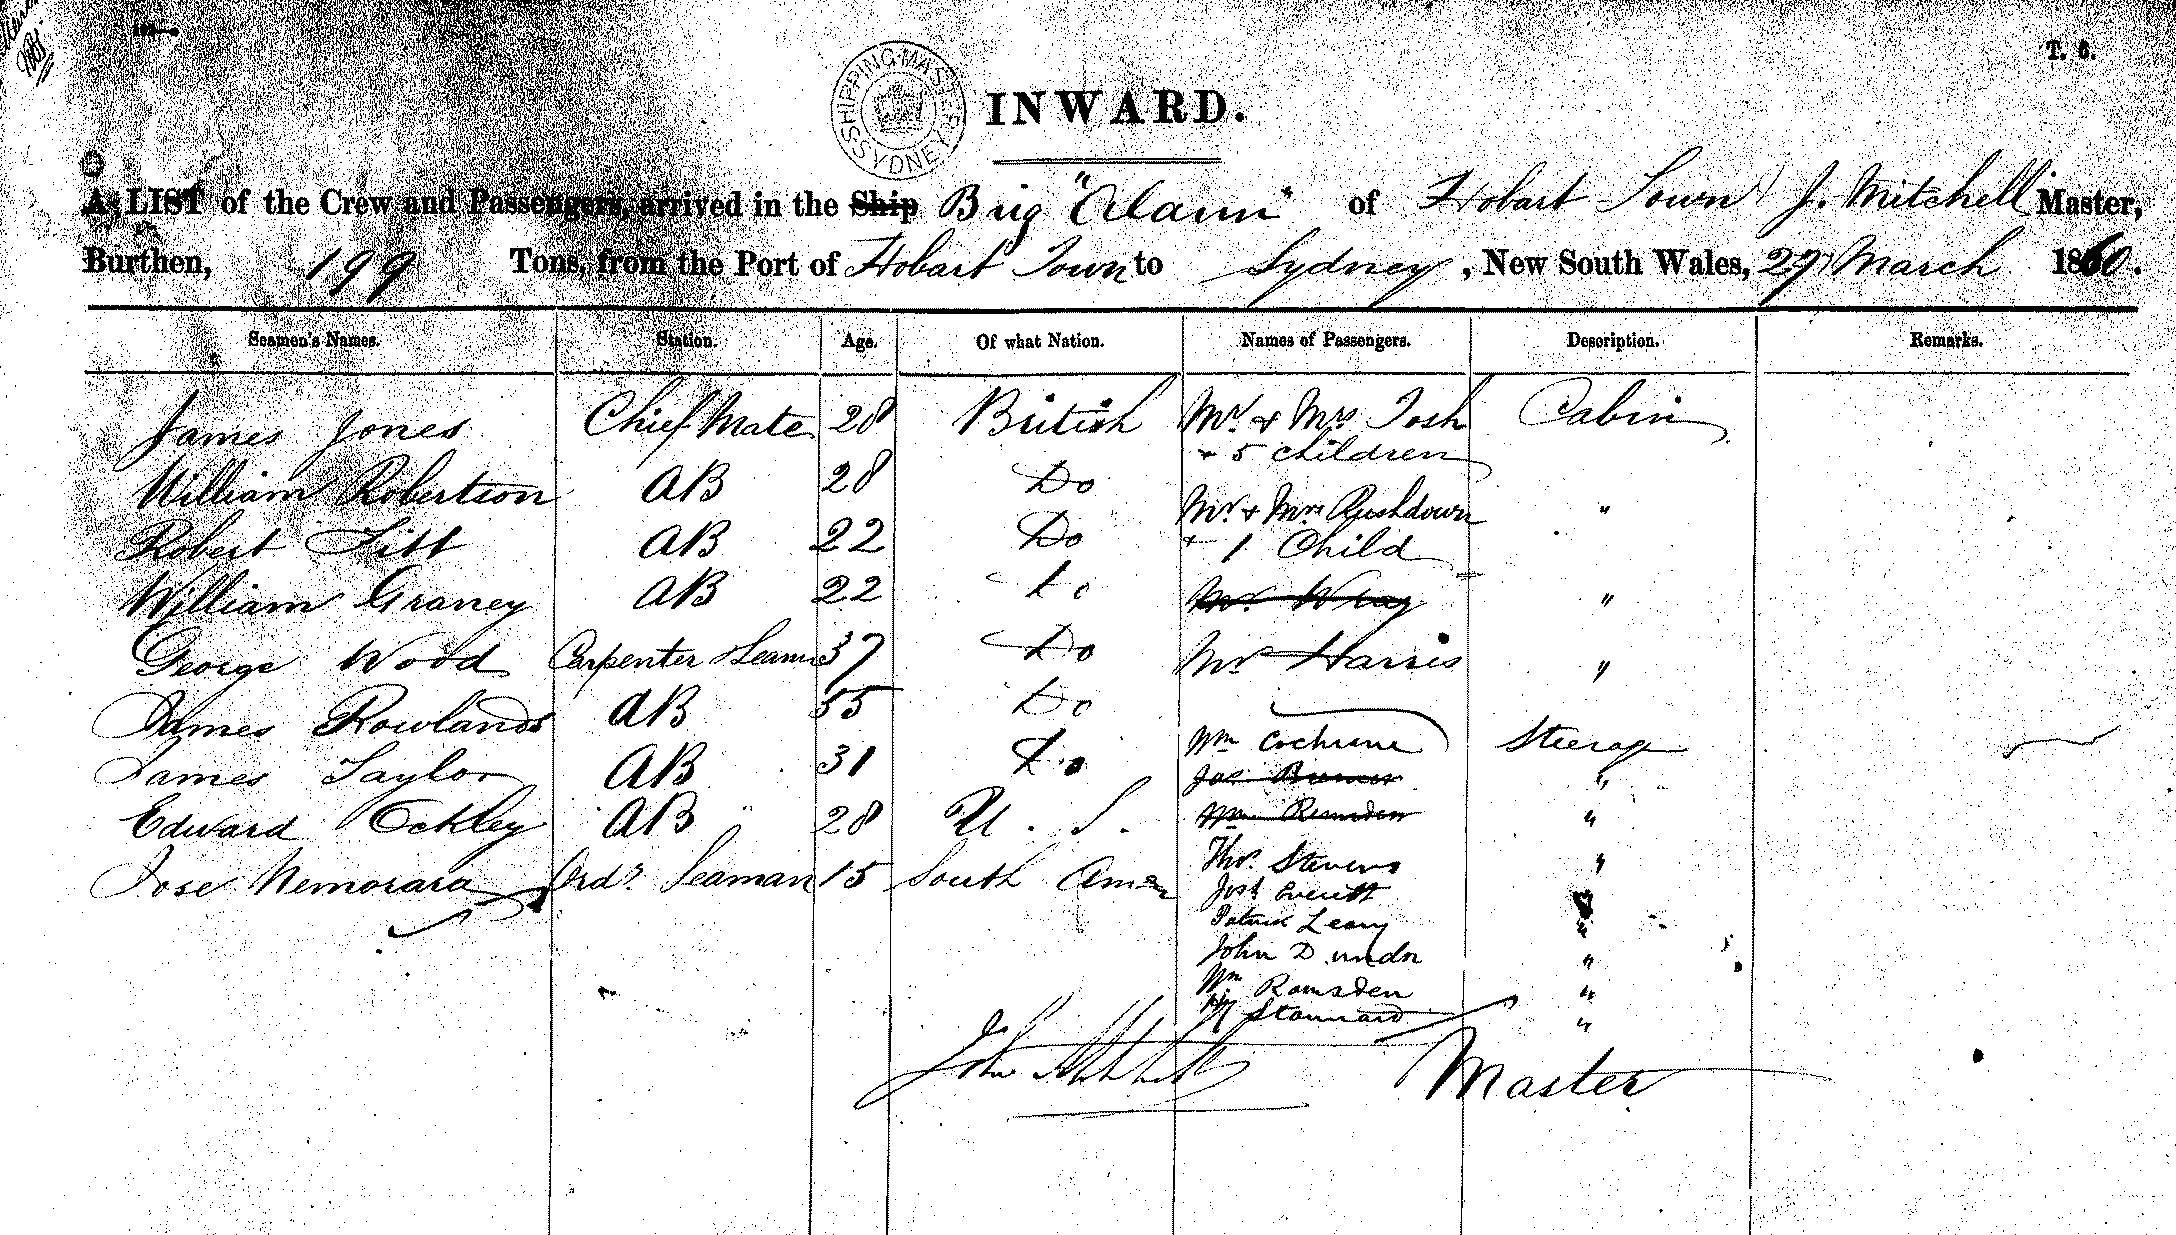 T. 6.
SHIPPING MASTER SYDNEY
INWARD.
A LIST of the Crew and Passengers, arrived in the Ship Brig "Alarm" of Hobart Town J. Mitchell Master,
Burthen, 199 Tons, from the Port of Hobart Town to Sydney, New South Wales, 29 March 1860.
Seamen's Names. Station. Age. Of what Nation. Names of Passengers. Description. Remarks.
James Jones Chief Mate 28 British Mr. & Mrs Tosh Cabin
+ 5 children
William Robertson AB 28 Do
Mr. + Mrs Rushdown "
Robert Titt AB 22 Do + 1 Child
William Graney AB 22 Do Mr. Wray "
George Wood Carpenter Seaman 37 Do Mr Harris "
James Rowlands AB 55 Do
Wm Cochrane Steerage
James Taylor AB 31 Do Jas. "
Edward Ockley AB 28 U. S. Wm Ramsden "
Thos. Stevens "
Jose Nemorara Ordy Seaman 15 South Amer
Josh Everitt "
Patrick Leary "
John Dundn "
Wm Ramsden "
Hy Stannard "
John Mitchell Master